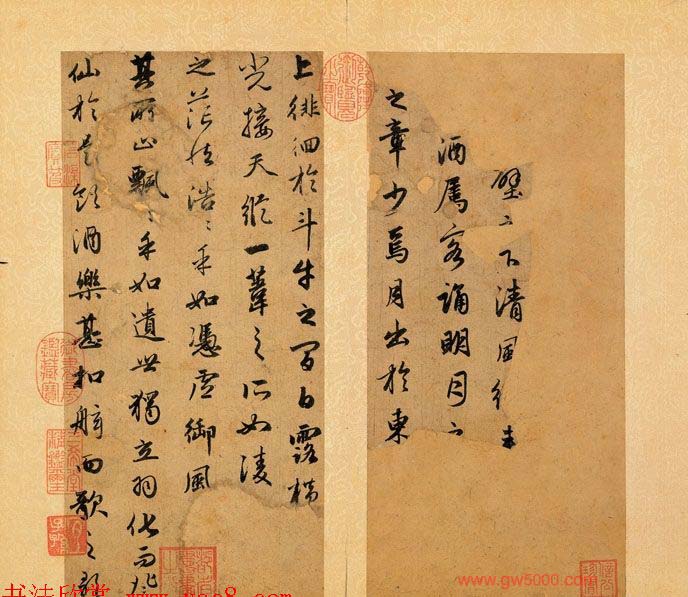 壁之下清風徐来
酒属客誦明月之
之章少焉月出於東
上徘徊於斗牛之間白露横
光接天縱一葦之所如陵
之茫然浩〻乎如憑虚御風
其所止飄〻乎如遺世獨立羽化而登
仙於是飲酒樂甚扣舷而歌之歌
www.gw5000.com
书法欣赏